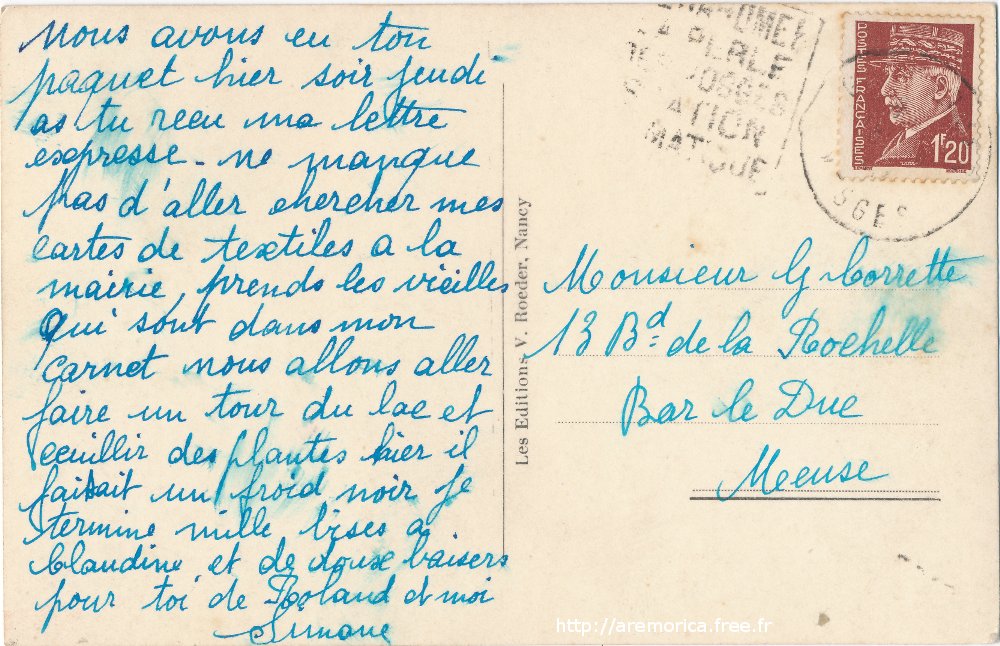 Nous avons eu ton
paquet hier soir jeudi
as tu recu ma lettre
expresse - ne manque
pas d'aller chercher mes
cartes de textiles a la
mairie, prends les vieilles
qui sont dans mon
carnet nous allons aller
faire un tour du lac et
ceuillir des plantes hier il
faisait un froid noir je
termine mille bises a
Claudine et de doux baisers
pour toi de Roland et moi
Simone
Les Editions V. Roeder, Nancy
PERLE
MATIQUE
SGES
POSTES FRANÇAISES
1F20
Monsieur G Corrette
13 Bd de la Rochelle
Bar le Duc
Meuse
http://aremorica.free.fr